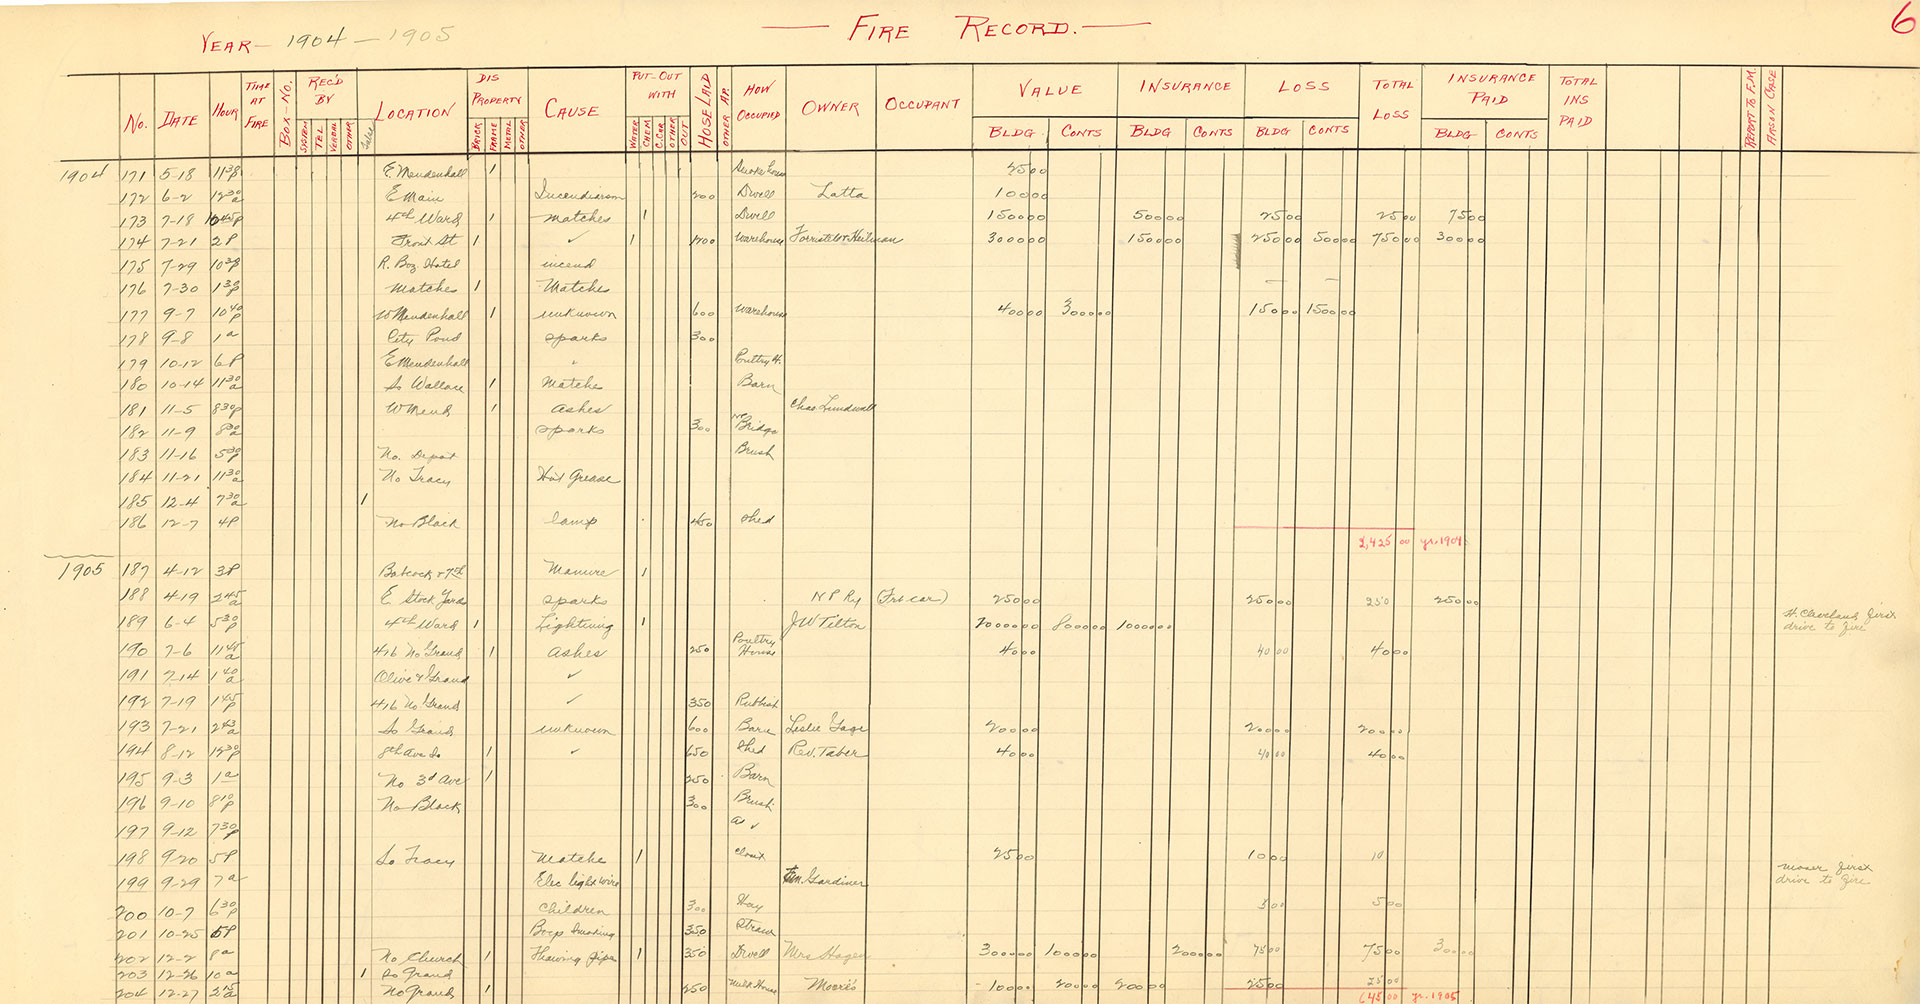 YEAR - 1904 - 1905 FIRE RECORD. 6
No. DATE HOUR TIME AT FIRE BOX-NO. REC'D BY SYSTEM TEL VERBAL OTHER False LOCATION DIS PROPERTY BRICK FRAME METAL OTHER CAUSE PUT-OUT WITH WATER CHEM C.Car OTHER OUT HOSE LAID OTHER AP. HOW OCCUPIED OWNER OCCUPANT VALUE BLDG CONTS INSURANCE BLDG CONTS LOSS BLDG CONTS TOTAL LOSS INSURANCE PAID BLDG CONTS TOTAL INS PAID REPORT TO F.M. ARSON CASE
1904 171 5-18 11 30 P E Mendenhall 1 Smoke house 25 00
172 6-2 12 30 a E Main Incendiarism 200 Dwell Latta 100 00
173 7-18 10 45 P 4th Ward 1 matches 1 Dwell 1500 00 500 00 25 00 25 00 75 00
174 7-21 2 P Front St 1 ✓ 1 1700 warehouse 3000 00 1500 00 250 00 500 00 750 00 300 00
175 7-29 10 30 P R. Boz Hotel incend
176 7-30 1 30 P Matches 1 Matches — —
177 9-7 10 40 P W Mendenhall 1 unknown 600 Warehouse 400 00 3000 00 150 00 1500 00
178 9-8 1 a City Pond sparks 300
179 10-12 6 P E Mendenhall " Poultry H.
180 10-14 11 30 a So Wallace 1 Matches Barn
181 11-5 8 30 P W Mend 1 Ashes Chas Lundwall
182 11-9 8 30 a sparks 300 Bridge
183 11-16 5 30 P No. Depot Brush
184 11-21 11 30 a No Tracy Hot Grease
185 12-4 7 30 a 1
186 12-7 4 P No Black lamp 450 Shed
2,425 00 yr. 1904
1905 187 4-12 3 P Babcock & 7th Manure 1
188 4-19 2 45 a E Stock Yards sparks N P Ry (Frt car) 250 00 250 00 250 250 00
189 6-4 5 30 P 4th Ward 1 Lightning 1 J W Tilton 20000 00 8000 00 10000 00 H. Cleveland first drive to fire
190 7-6 11 45 a 416 No Grand 1 Ashes 250 Poultry House 40 00 40 00 40 00
191 7-14 1 40 a Olive & Grand ✓
192 7-19 1 45 P 416 No Grand ✓ 350 Rubbish
193 7-21 2 43 a So Grand unknown 600 Barn Leslie Gage 200 00 200 00 200 00
194 8-12 12 30 P 8th Ave So 1 ✓ 650 Shed Rev. Taber 40 00 40 00 40 00
195 9-3 1 a No 3d Ave 1 250 Barn
196 9-10 8 10 P No Black 300 Brush
197 9-12 7 30 P as ✓
198 9-20 5 P So Tracy Matche 1 closet 25 00 10 00 10
199 9-29 7 a Elec light wire Gardiner Moser first drive to fire
200 10-7 6 30 P children 300 Hay 5 00 5 00
201 10-25 5 P Boys smoking 350 Straw
202 12-2 8 a No Church 1 Thawing pipe 1 350 Dwell Mrs Hager 3000 00 1000 00 2000 00 75 00 75 00
203 12-26 10 a 1 So Grand
204 12-27 2 15 a No Grand 1 250 Milk House Moore's 100 00 200 00 200 00 25 00 25 00
645 00 yr. 1905